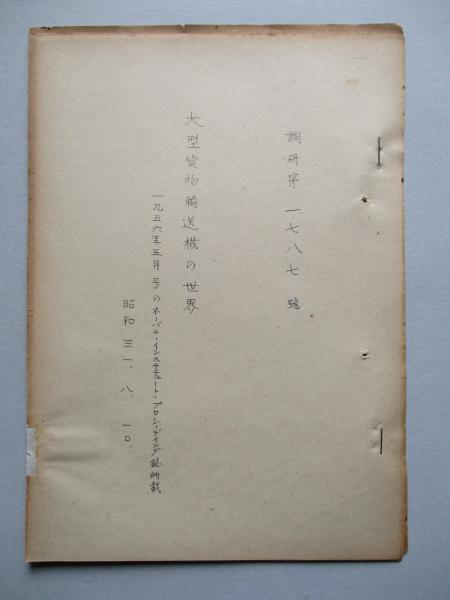 調研第一七八七號
大型貨物輸送機の世界
一九五六年五月号のネーバル・インスチチュート・プロシーディング誌所載
昭和三一、八、一〇、